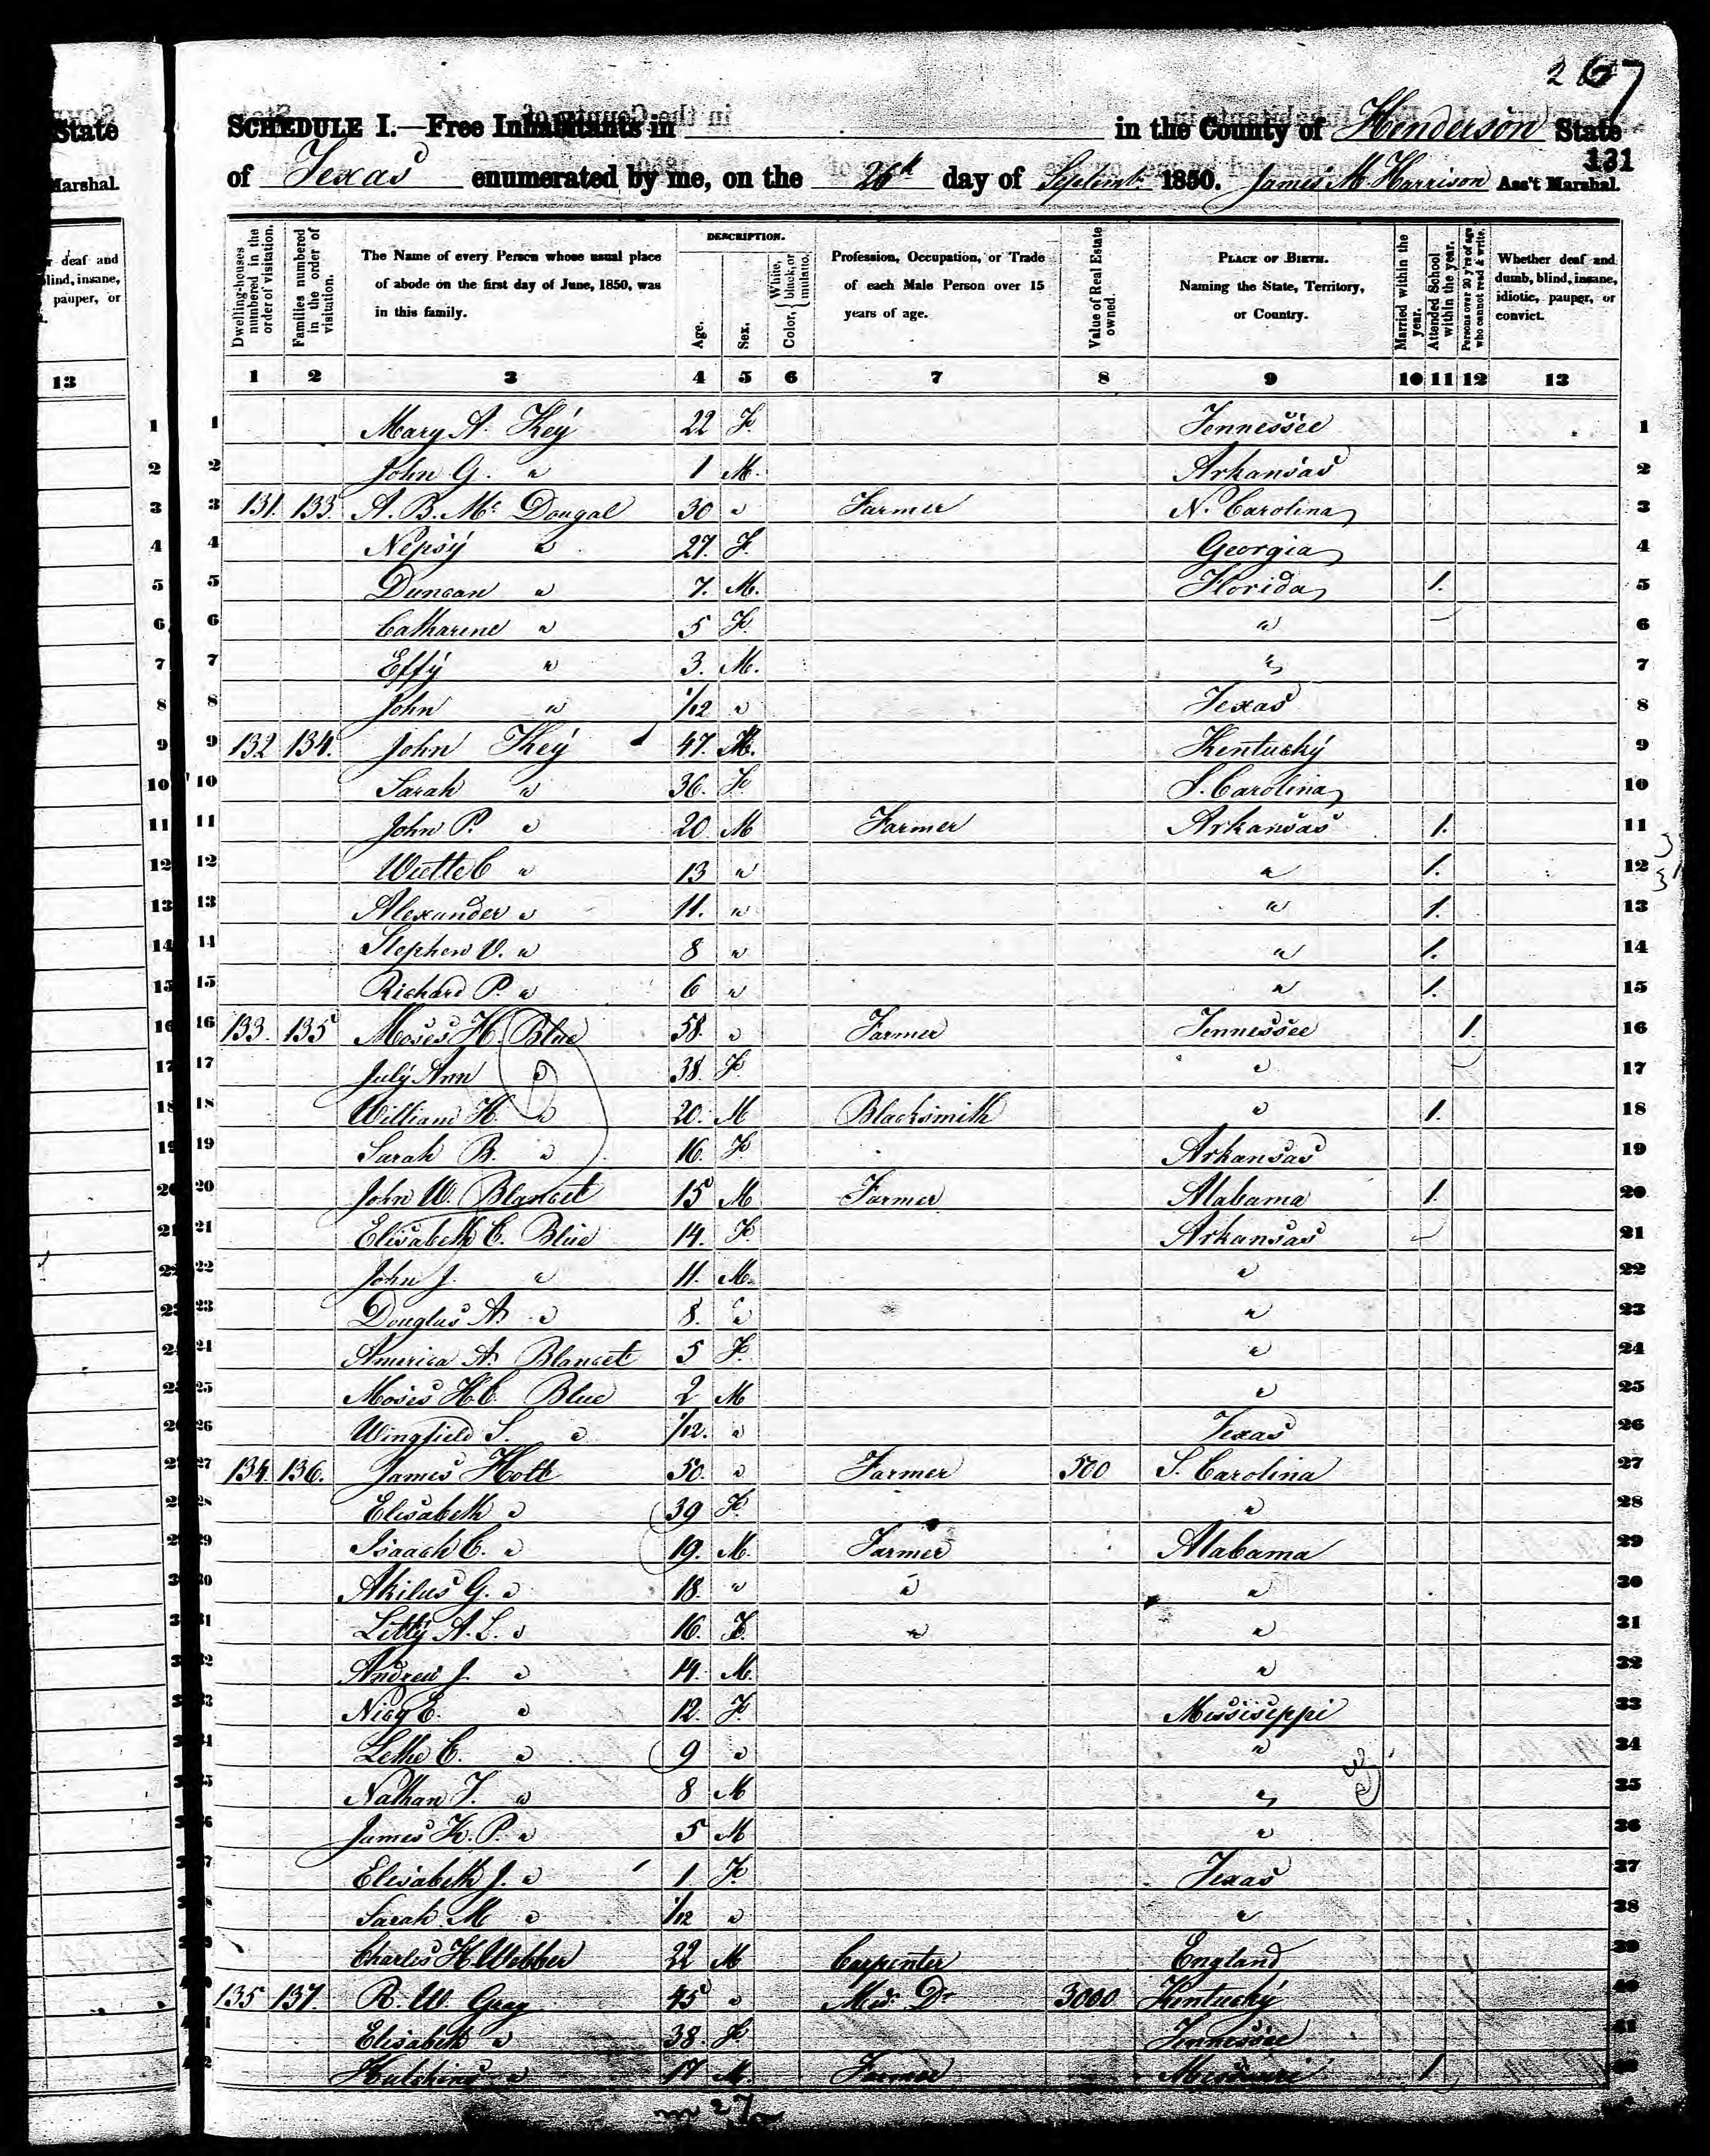 267
SCHEDULE I.—Free Inhabitants in in the County of Henderson State
131
of Texas enumerated by me, on the 26th day of Septembr 1850. James M Harrison Ass't Marshal.
State
Marshal.
deaf and
blind, insane,
pauper, or
13
Dwelling-houses numbered in the order of visitation.
Families numbered in the order of visitation.
The Name of every Person whose usual place of abode on the first day of June, 1850, was in this family.
DESCRIPTION.
Age.
Sex.
Color, { White, black, or mulatto.
Profession, Occupation, or Trade of each Male Person over 15 years of age.
Value of Real Estate owned.
PLACE OF BIRTH. Naming the State, Territory, or Country.
Married within the year.
Attended School within the year.
Persons over 20 y'rs of age who cannot read & write.
Whether deaf and dumb, blind, insane, idiotic, pauper, or convict.
1 2 3 4 5 6 7 8 9 10 11 12 13
1 Mary A. Key 22 F. Tennessee 1
2 John G. " 1 M. Arkansas 2
3 131. 133. A. B. Mc Dougal 30 " Farmer N. Carolina 3
4 Nepsy " 27. F. Georgia 4
5 Duncan " 7. M. Florida 1. 5
6 Catharine " 5 F. " 6
7 Effy " 3. M. " 7
8 John " 1/12 " Texas 8
9 132 134. John Key 47. M. Kentucky 9
10 Sarah " 36. F. S. Carolina 10
11 John P. " 20 M Farmer Arkansas 1. 11
12 " 13 " " 1. 12
13 Alexander " 11. " " 1. 13
14 Stephen V. " 8 " " 1. 14
15 Richard P. " 6 " " 1. 15
16 133. 135 Moses H. Blue 58. " Farmer Tennessee 1. 16
17 July Ann " 38. F. " 17
18 William H. " 20. M Blacksmith " 1. 18
19 Sarah B. " 16. F. Arkansas 19
20 John W. Blancet 15 M Farmer Alabama 1. 20
21 Elisabeth C. Blue 14. F. Arkansas 21
22 John J. " 11. M. " 22
23 Douglas A. " 8. " " 23
24 America A. Blancet 5 F. " 24
25 Moses H. C. Blue 2 M " 25
26 Wingfield S. " 1/12. " Texas 26
27 134. 136. James Holt 50. " Farmer 500 S. Carolina 27
28 Elisabeth " 39 F. " 28
29 Isaach C. " 19. M. Farmer Alabama 29
30 Akilus G. " 18. " " " 30
31 Letty A. L. " 16. F. " " 31
32 Andrew J. " 14. M. " 32
33 Nicy E. " 12. F. Missiseppi 33
34 Lethe C. " 9 " " 34
35 Nathan F. " 8 M " 35
36 James K. P. " 5 M " 36
37 Elisabeth J. " 1 F. Texas 37
38 Sarah M " 1/12 " " 38
39 Charles H. Webber 22 M Carpenter England 39
40 135 137. R. W. Gray 45 " Med. Dr 3000 Kentucky 40
41 Elisabeth " 38. F. Tennessee 41
42 Hutchins " 17 M. Farmer Missouri 1. 42
m 27